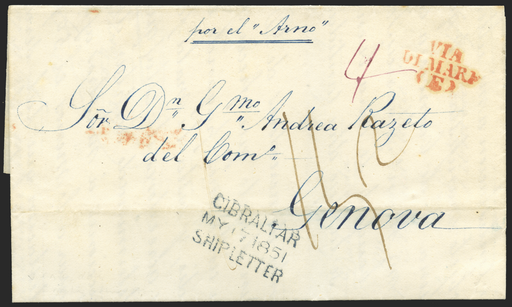 por el "Arno"
VIA
DI MARE
(E)
4
Sőr Dn. Gmo. Andrea Razeto
del Como.
Genova
GIBRALTAR
MY 17 1851
SHIP LETTER